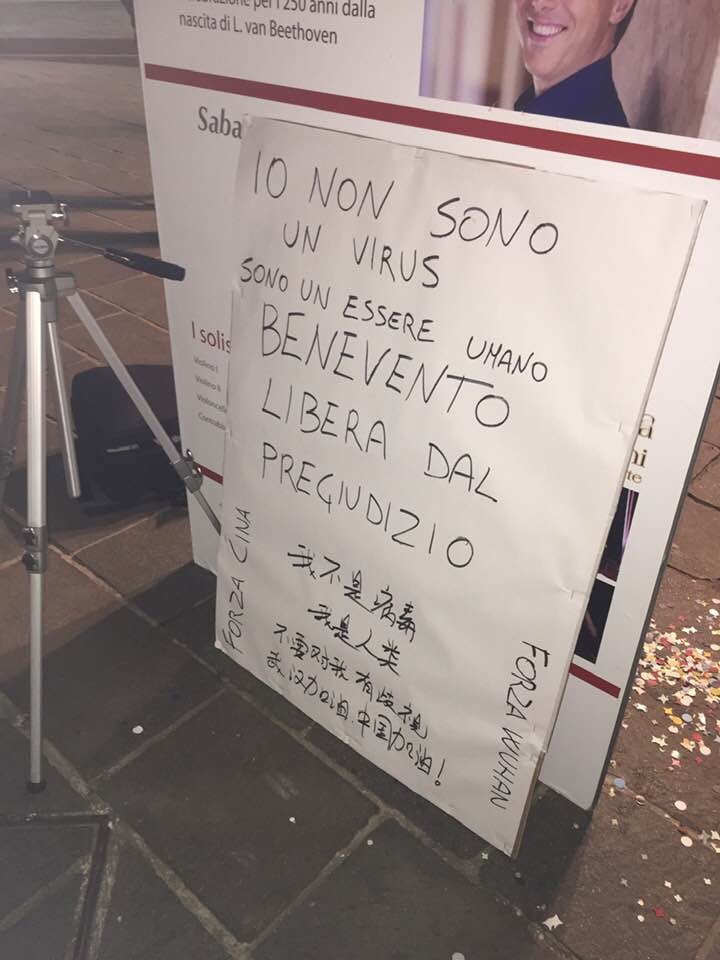 per i 250 anni dalla
nascita di L. van Beethoven
Saba
IO NON SONO
UN VIRUS
SONO UN ESSERE UMANO
BENEVENTO
LIBERA DAL
PREGIUDIZIO
I solis
Violino I
Violino II
FORZA CINA
我不是病毒
我是人类
不要对我有歧视
武汉加油.中国加油!
FORZA WUHAN